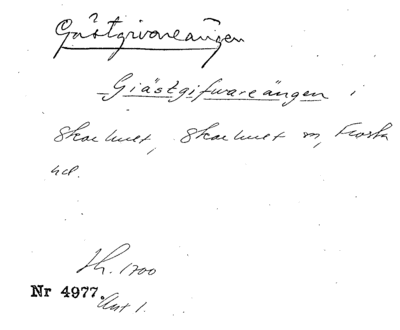 Gästgivareängen
Giästgifwareängen i
Skarhult, Skarhult sn, Frosta
hd.
Lh. 1700
Nr 4977. Akt 1.